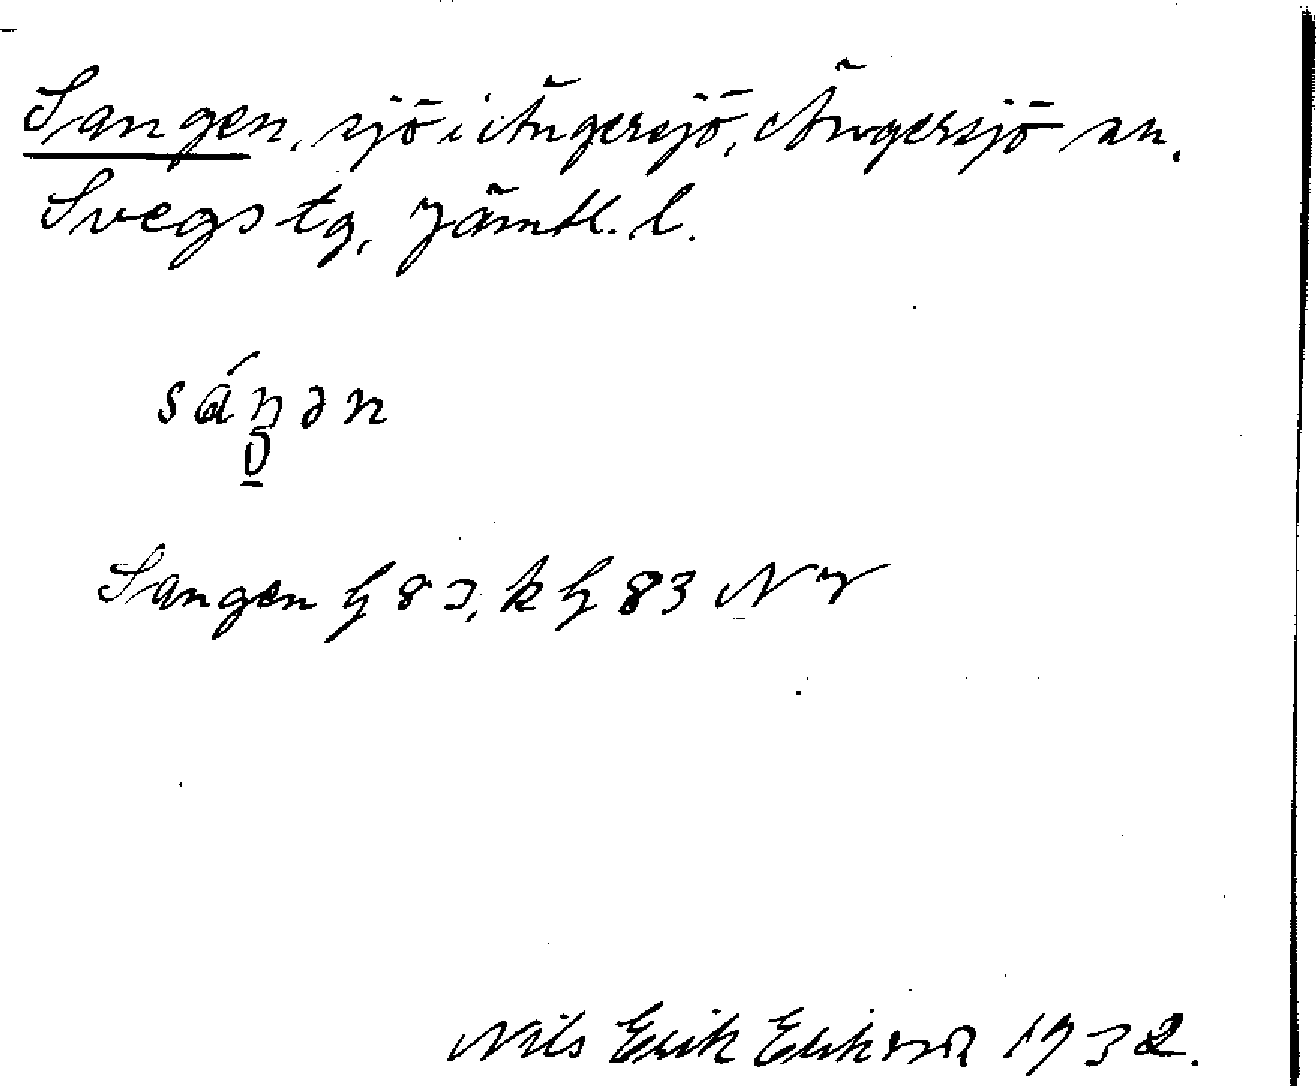 Sangen, sjö i Ängersjö, Ängersjö sn.
Svegs tg, Jämtl. l.
sáŋən
Sangen h 83, k h 83 NV
Nils Erik Eriksson 1932.